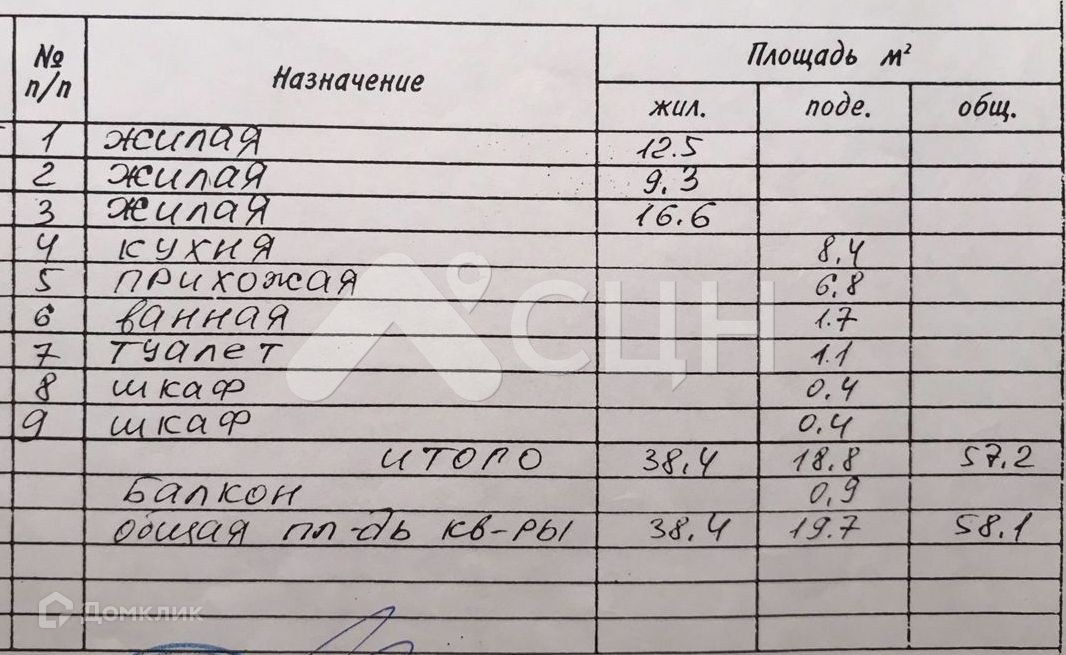 № п/п Назначение Площадь м²
жил. поде. общ.
1 жилая 12.5
2 жилая 9,3
3 жилая 16.6
4 кухня 8,4
5 прихожая 6,8
6 ванная 1.7
7 туалет 1.1
8 шкаф 0.4
9 шкаф 0.4
ИТОГО 38,4 18.8 57.2
Балкон 0,9
общая пл-дь кв-ры 38,4 19.7 58.1
СЦН
Домклик